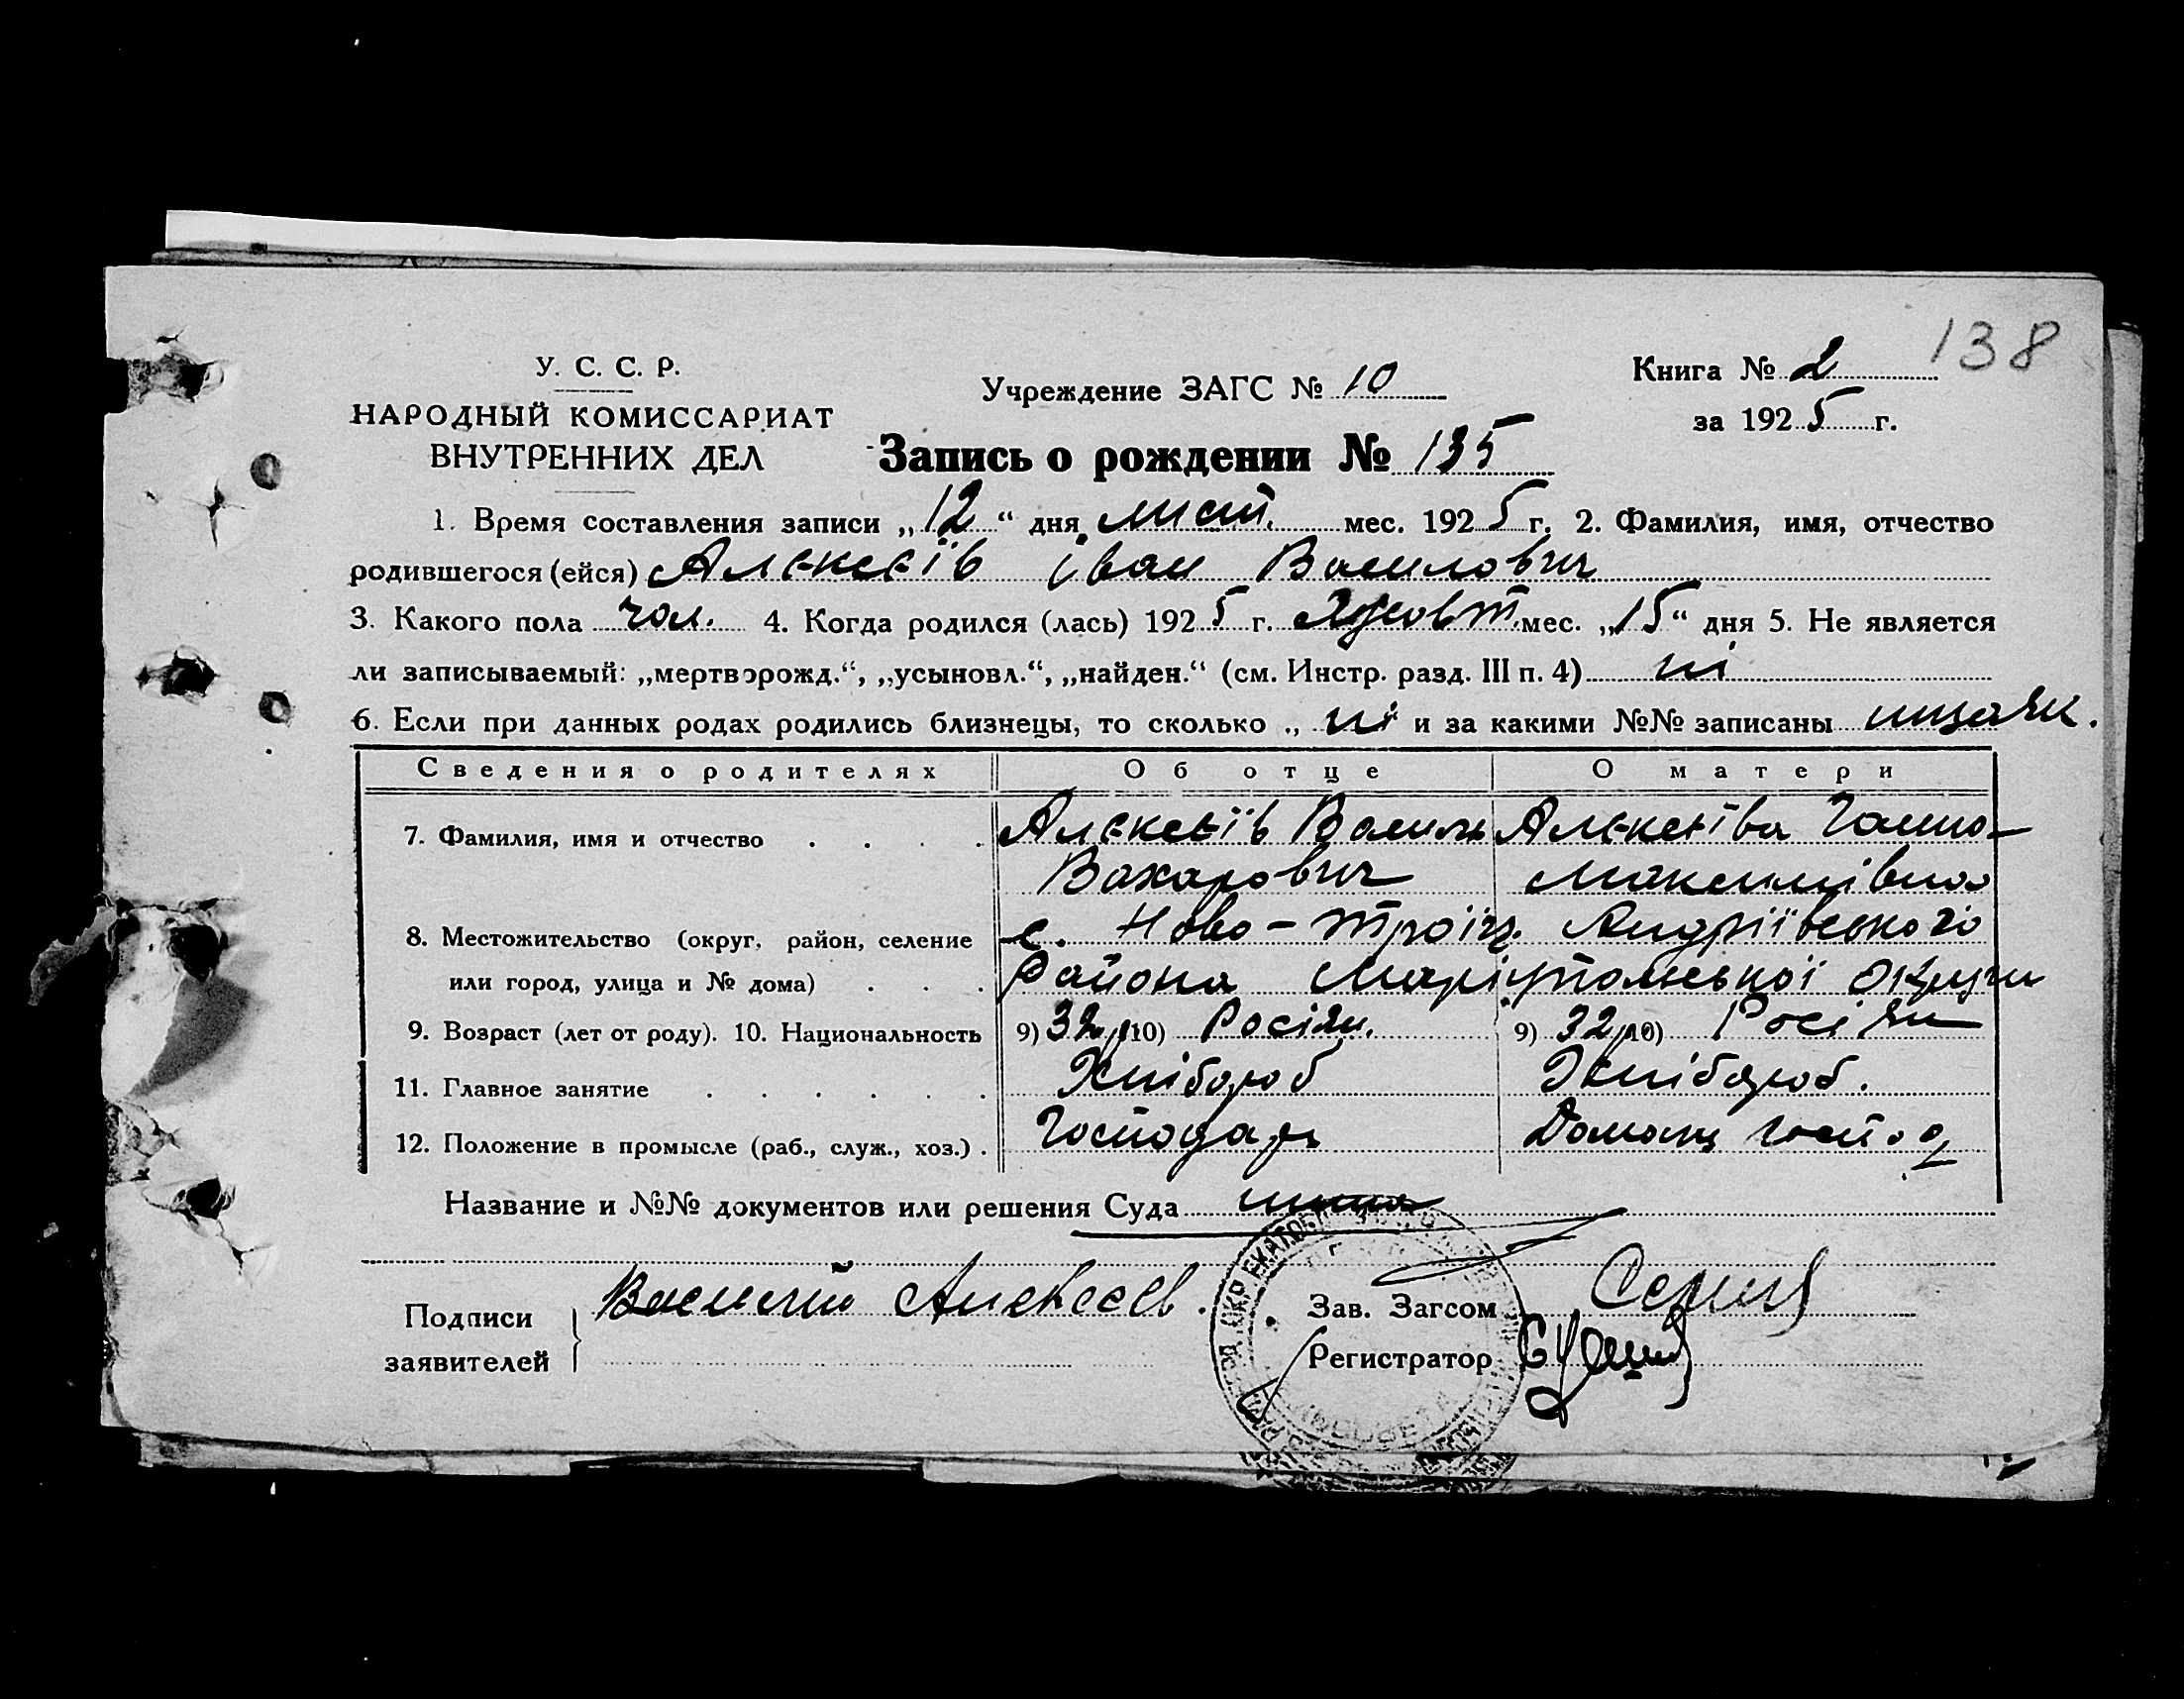 138
У. С. С. Р.
НАРОДНЫЙ КОМИССАРИАТ
ВНУТРЕННИХ ДЕЛ
Учреждение ЗАГС № 10
Книга № 2
за 1925 г.
Запись о рождении № 135
1. Время составления записи „12“ дня лист. мес. 1925 г. 2. Фамилия, имя, отчество
родившегося (ейся) Алєксєїв Іван Василович
3. Какого пола чол. 4. Когда родился (лась) 1925 г. Жовт. мес. „15“ дня 5. Не является
ли записываемый: „мертворожд.“, „усыновл.“, „найден.“ (см. Инстр. разд. III п. 4) ні
6. Если при данных родах родились близнецы, то сколько „ ні и за какими №№ записаны
Сведения о родителях Об отце О матери
7. Фамилия, имя и отчество Алєксєїв Василь Алєксєїва Ганна
Захарович Максимівна
8. Местожительство (округ, район, селение с. Ново-Троїц. Андріївського
или город, улица и № дома) Района Маріупольської округи
9. Возраст (лет от роду). 10. Национальность 9) 32 р. 10) Росіян. 9) 32 р. 10) Росіян
11. Главное занятие Хлібороб Хлібороб.
12. Положение в промысле (раб., служ., хоз.) Господарь Домашн господ
Название и №№ документов или решения Суда
Подписи
заявителей
Василий Алексеев.
Зав. Загсом
Регистратор